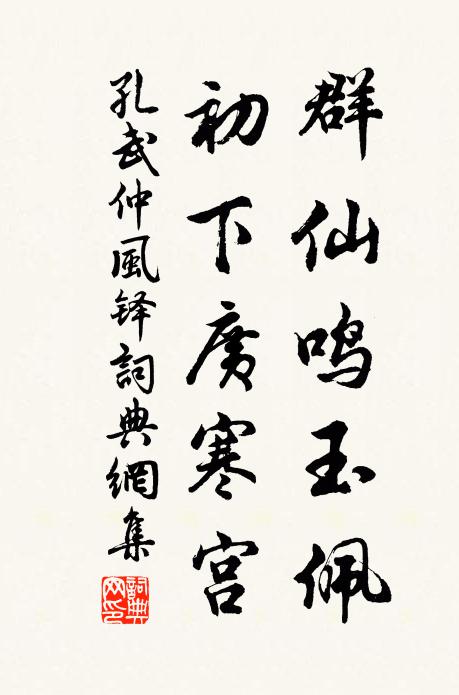 群仙鸣玉佩
初下广寒宫
孔武仲風铎詞典網集
詞典網印